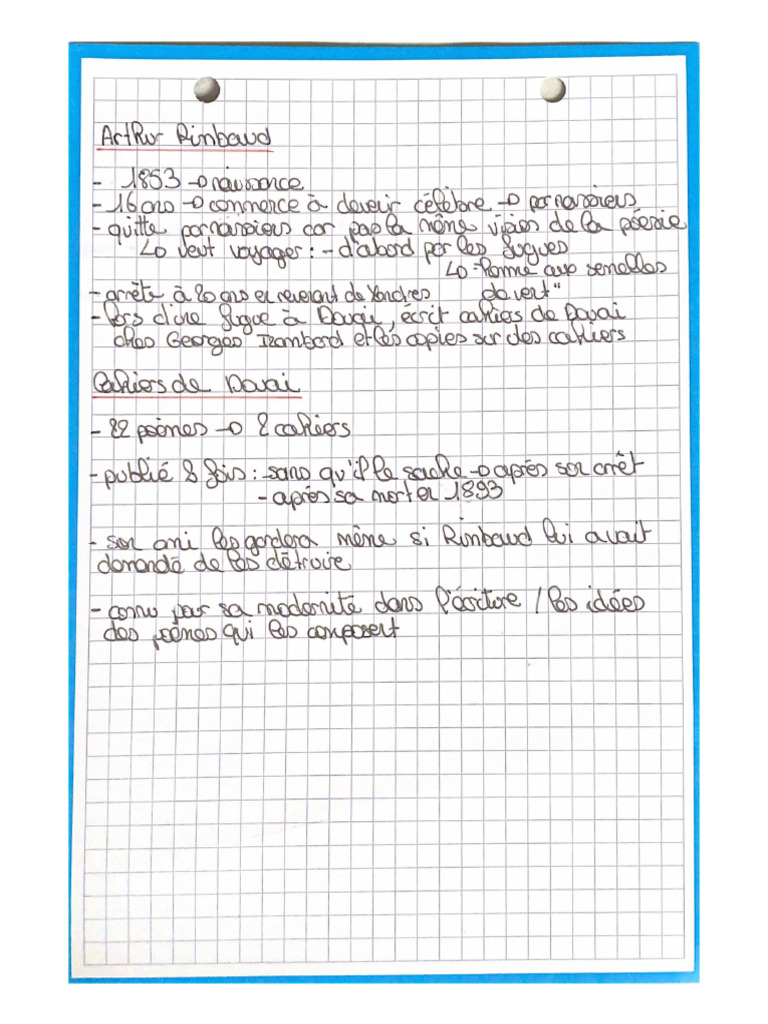 Arthur Rimbaud
- 1853 → naissance
- 16 ans → commence à devenir célèbre → parnassiens
- quitte parnassiens car pas la même vision de la poésie
↳ veut voyager : - d'abord par les fugues
↳ "l'homme aux semelles
- arrête à 20 ans et revenant de Londres de vent"
- lors d'une fugue à Douai, écrit cahiers de Douai
chez Georges Izambard et les copies sur des cahiers
Cahiers de Douai
- 22 poèmes → 2 cahiers
- publié 2 fois : - sans qu'il le sache → après son arrêt
- après sa mort en 1893
- son ami les gardera même si Rimbaud lui avait
demandé de les détruire
- connu pour sa modernité dans l'écriture / les idées
des poèmes qui les composent